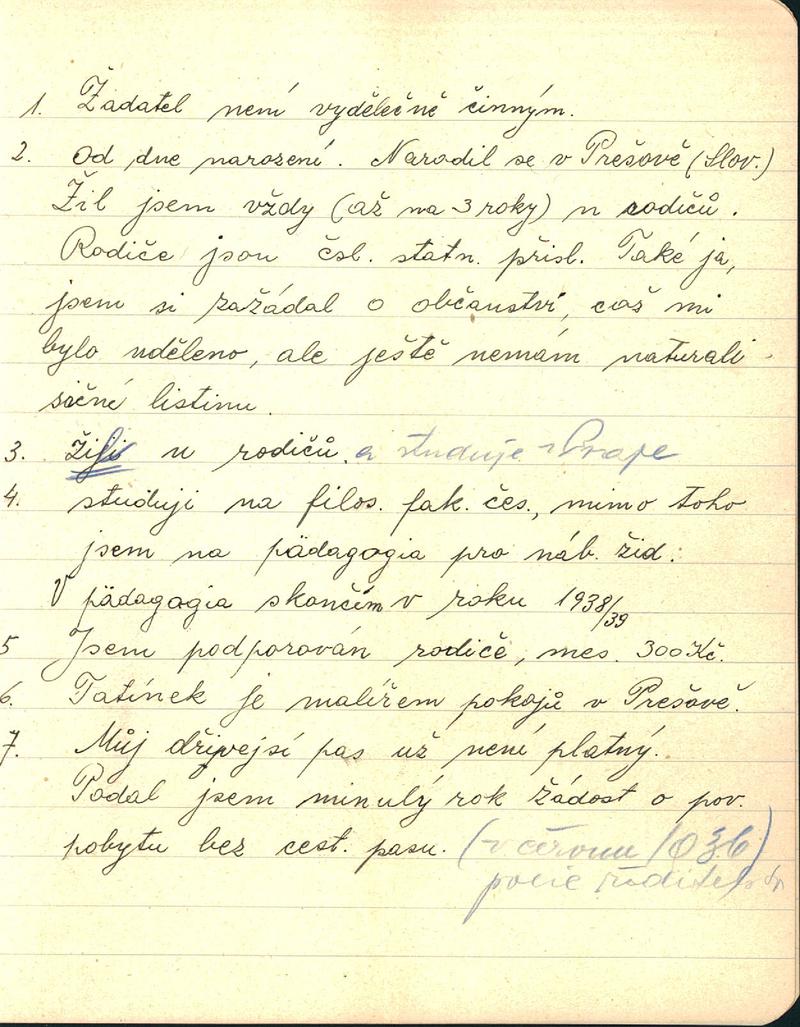 1. Žadatel není vydělečně činným.
2. Od dne narození. Narodil se v Prešově (Slov.)
Žil jsem vždy (až na 3 roky) u rodičů.
Rodiče jsou čsl. statn. přisl. Také ja,
jsem si zažádal o občanstvi, což mi
bylo uděleno, ale ještě nemám naturali-
sičné listinu.
3. Žiji u rodičů. a studuje v Praze
4. studuji na filos. fak. čes., mimo toho
jsem na pädagogia pro náb. žid.
V pädagogia skončím v roku 1938/39
5 Jsem podporován rodiče, mes. 300 Kč.
6. Tatínek je malířem pokojů v Prešově.
7. Můj dřivejsí pas už není platný.
Podal jsem minulý rok žádost o pov.
pobytu bez cest. pasu. (v červnu 1936)
ředitel